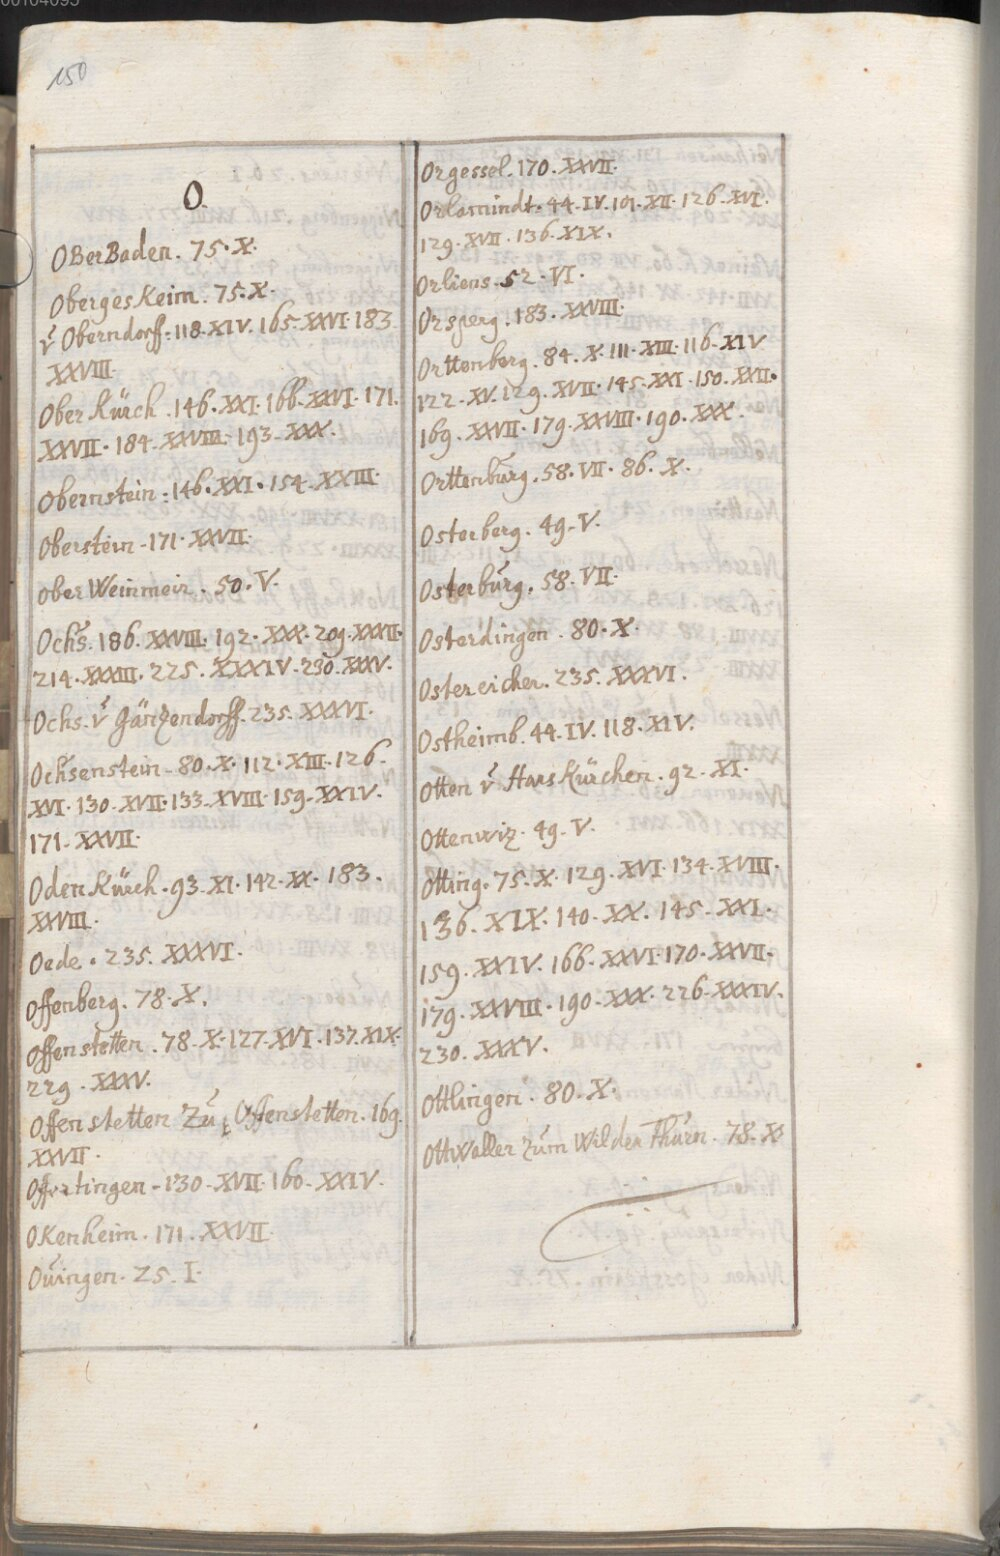 150
O.
OBerBaden. 75. X.
Oberges Keim. 75. X.
v̊ Oberndorff: 118. XIV. 165. XXVI. 183.
XXVIII.
Ober Kürch. 146. XXI. 166. XXVI. 171.
XXVII. 184. XXVIII. 193. XXX.
Obernstein: 146. XXI. 154. XXIII.
Oberstein. 171. XXVII.
ober Weinmeir. 50. V.
Ochs. 186. XXVIII. 192. XXX. 209. XXXII.
214. XXXIII. 225. XXXIV. 230. XXXV.
Ochs. v̊ Gänzendorff. 235. XXXVI.
Ochsenstein. 80. X. 112. XIII. 126.
XVI. 130. XVII. 133. XVIII. 159. XXIV.
171. XXVII.
Oden Kürch. 93. XI. 142. XX. 183.
XXVIII.
Oede. 235. XXXVI.
Offenberg. 78. X.
Offenstetten. 78. X. 127. XVI. 137. XIX.
229. XXXV.
Offenstetten Zu Offenstetten. 169.
XXVII.
Offertingen. 130. XVII. 160. XXIV.
OKenheim. 171. XXVII.
Ouingen. 25. I.
Orgessel. 170. XXVII.
Orlamindt. 44. IV. 101. XII. 126. XVI.
129. XVII. 136. XIX.
Orliens. 52. VI.
Orsperg. 183. XXVIII.
Orttenberg. 84. X. 111. XIII. 116. XIV
122. XV. 129. XVII. 145. XXI. 150. XXII.
169. XXVII. 179. XXVIII. 190. XXX.
Orttenburg. 58. VII. 86. X.
Osterberg. 49. V.
Osterburg. 58. VII.
Osterdingen. 80. X.
Ostereicher. 235. XXXVI.
Ostheimb. 44. IV. 118. XIV.
Otten v̊ HarsKürchen. 92. XI.
Ottenwiz. 49. V.
Otting. 75. X. 129. XVI. 134. XVIII.
136. XIX. 140. XX. 145. XXI.
159. XXIV. 166. XXVI. 170. XXVII.
179. XXVIII. 190. XXX. 226. XXXIV.
230. XXXV.
Ottlingen. 80. X.
OttWaller zum Wilden Thurn. 78. X